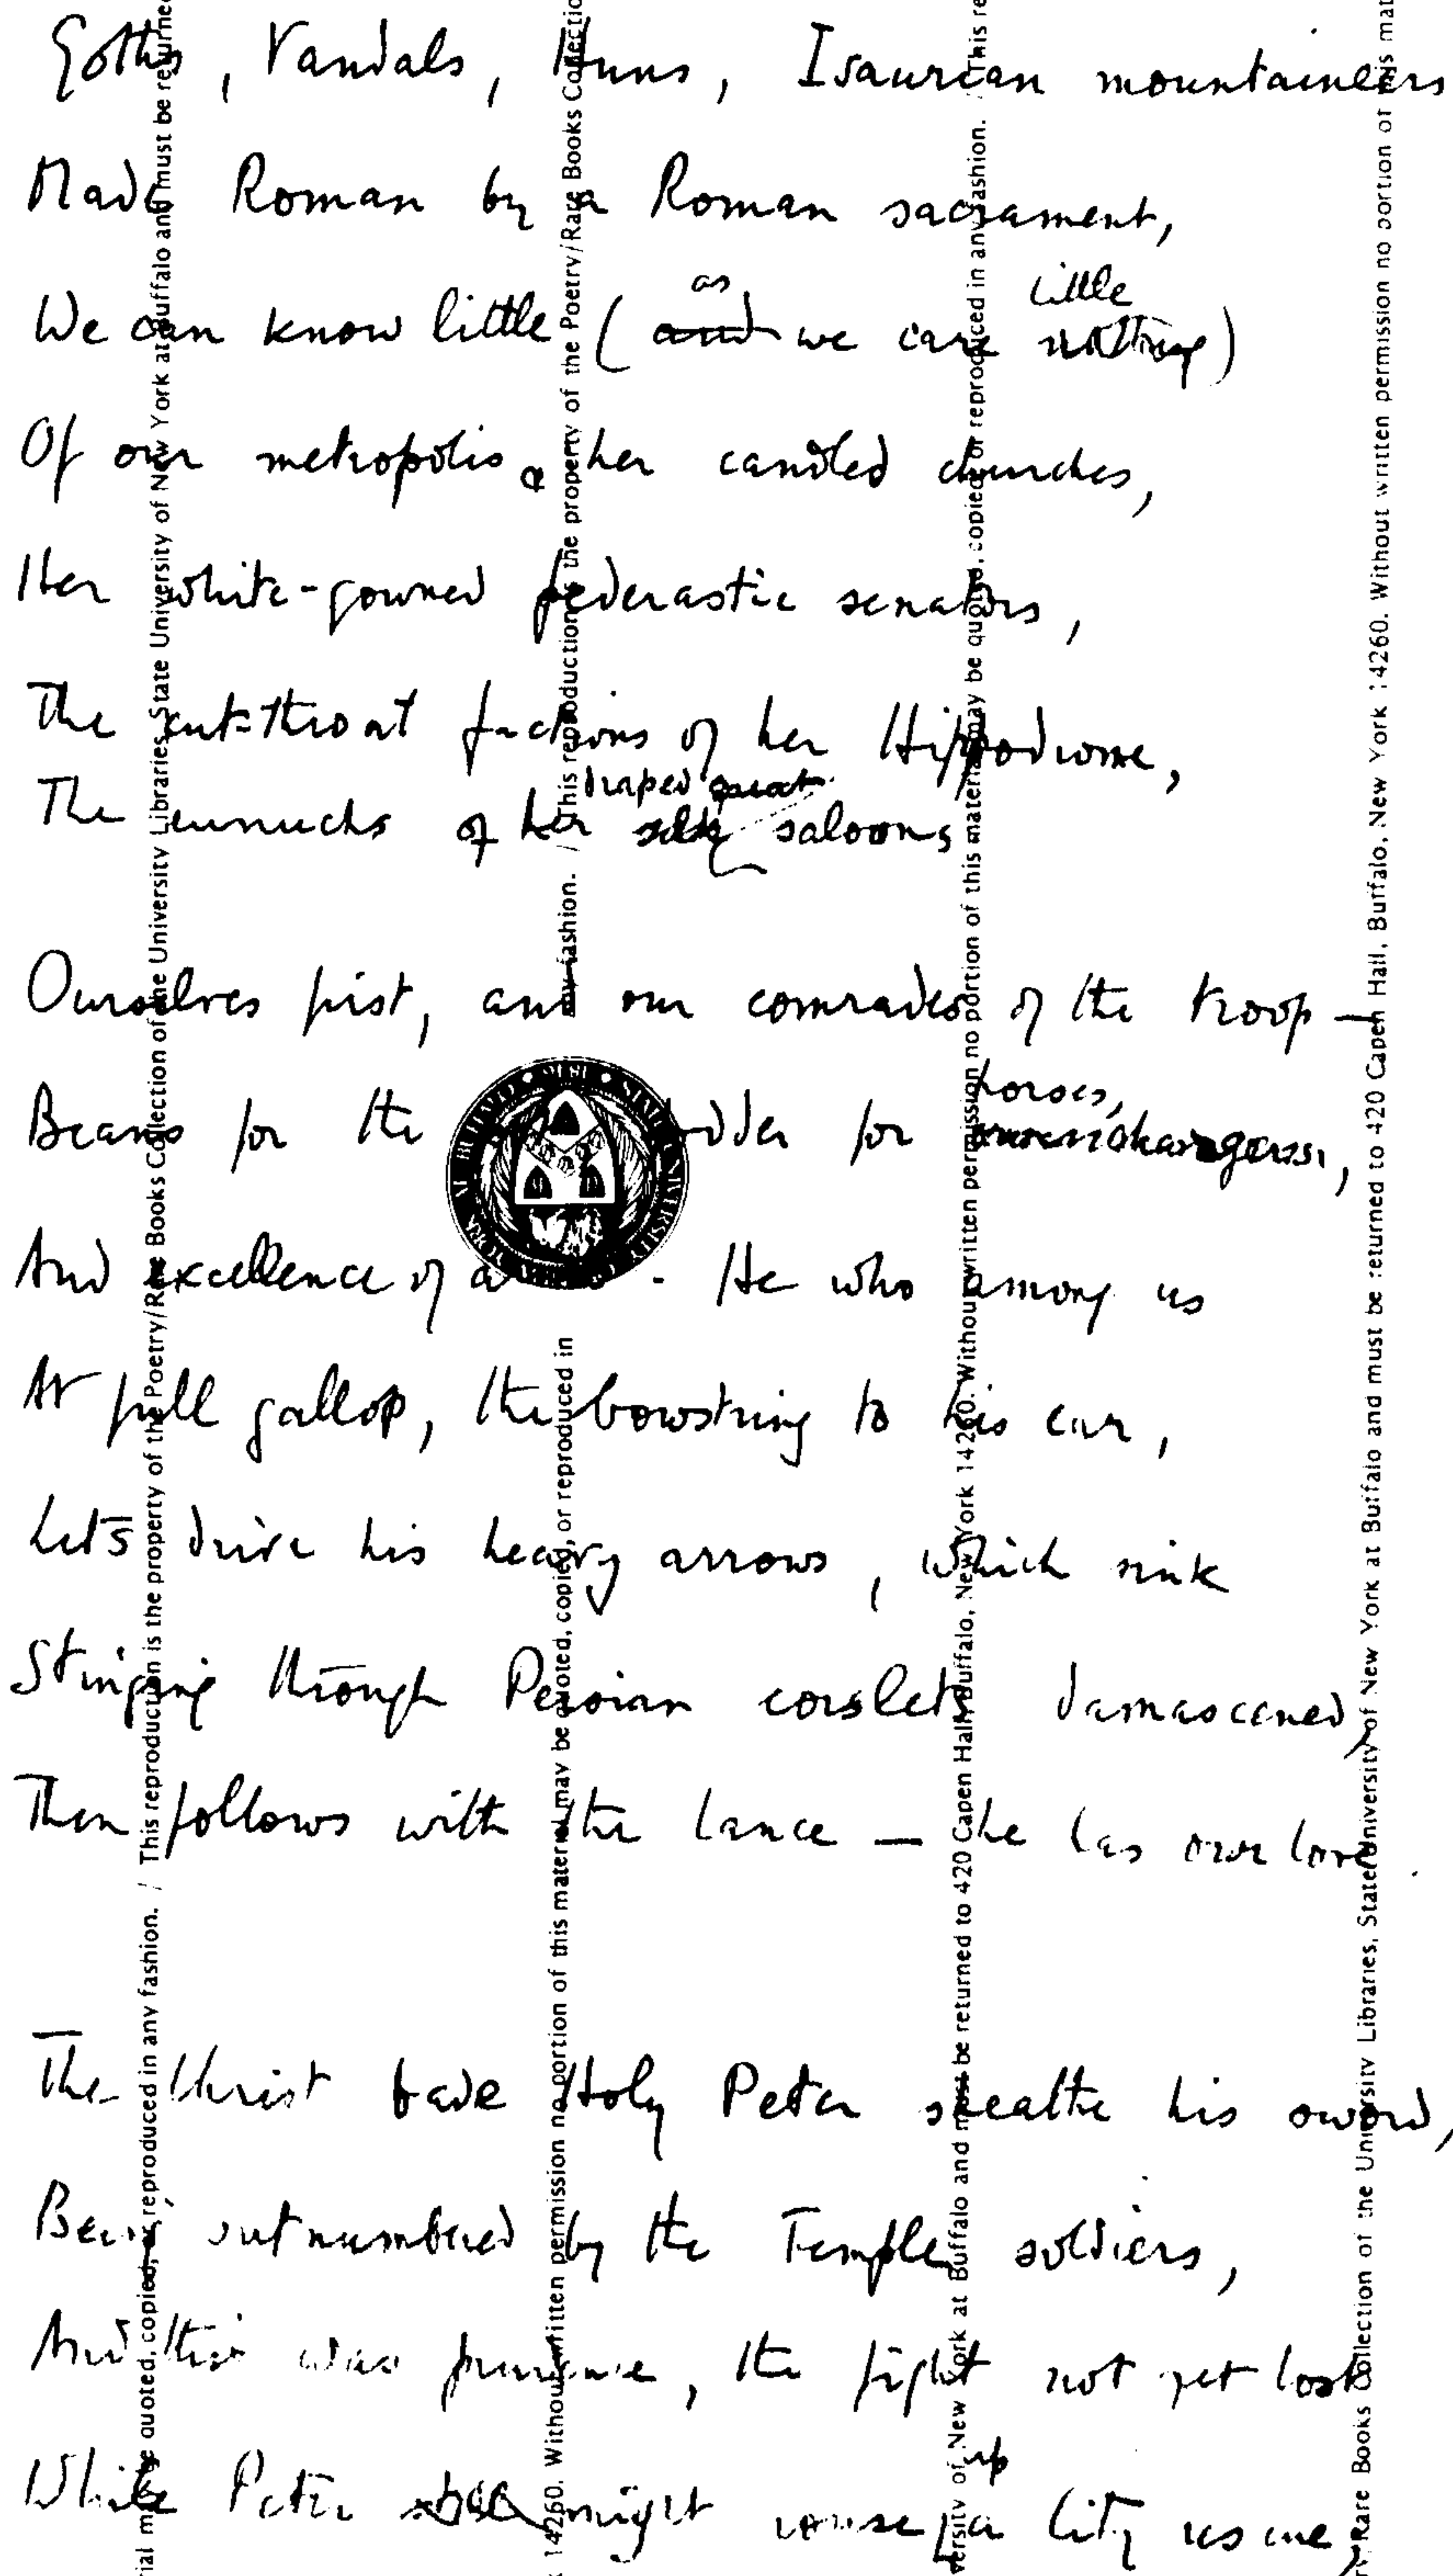 Goths, Vandals, Huns, Isaurian mountaineers
Made Roman by a Roman sacrament,
as little
We can know little (and we care nothing)
Of our metropolis & her candled churches,
Her white-gowned pederastic senators,
The cut-throat factions of her Hippodrome,
draped great
The eunuchs of her silk saloons
Ourselves first, and our comrades of the troop —
horses,
Beans for the for
And excellence of . He who among us
At full gallop, the bowstring to his ear,
Lets drive his heavy arrows, which sink
Stinging through Persian corslets damascened,
Then follows with the lance — he has our love.
The Christ bade Holy Peter sheathe his sword,
Being outnumbered by the Temple soldiers,
And this was prudence, the fight not yet lost
up
While Peter might rouse a City rescue,
This reproduction is the property of the Poetry/Rare Books Collection of the University Libraries, State University of New York at Buffalo and must be returned to 420 Capen Hall, Buffalo, New York 14260. Without written permission no portion of this material may be quoted, copied, or reproduced in any fashion.